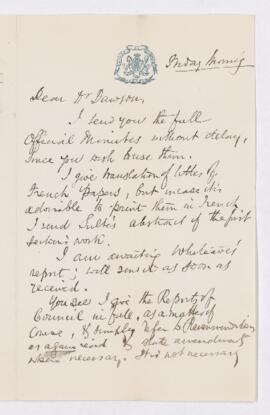 Friday Morning
Dear Dr Dawson,
I send you the full
Official Minutes without delay,
since you wish to use them.
I give translation of titles of
French papers, but in case it is
advisable to print them in French
I send Sulte's abstract of the first
section's work.
I am awaiting Whiteaves'
report; will send it as soon as
received.
You see I give the Report of
Council in full, as a matter of
course, & simply refer to Recommendations
as again read & state amendments
where necessary. It is not necessary